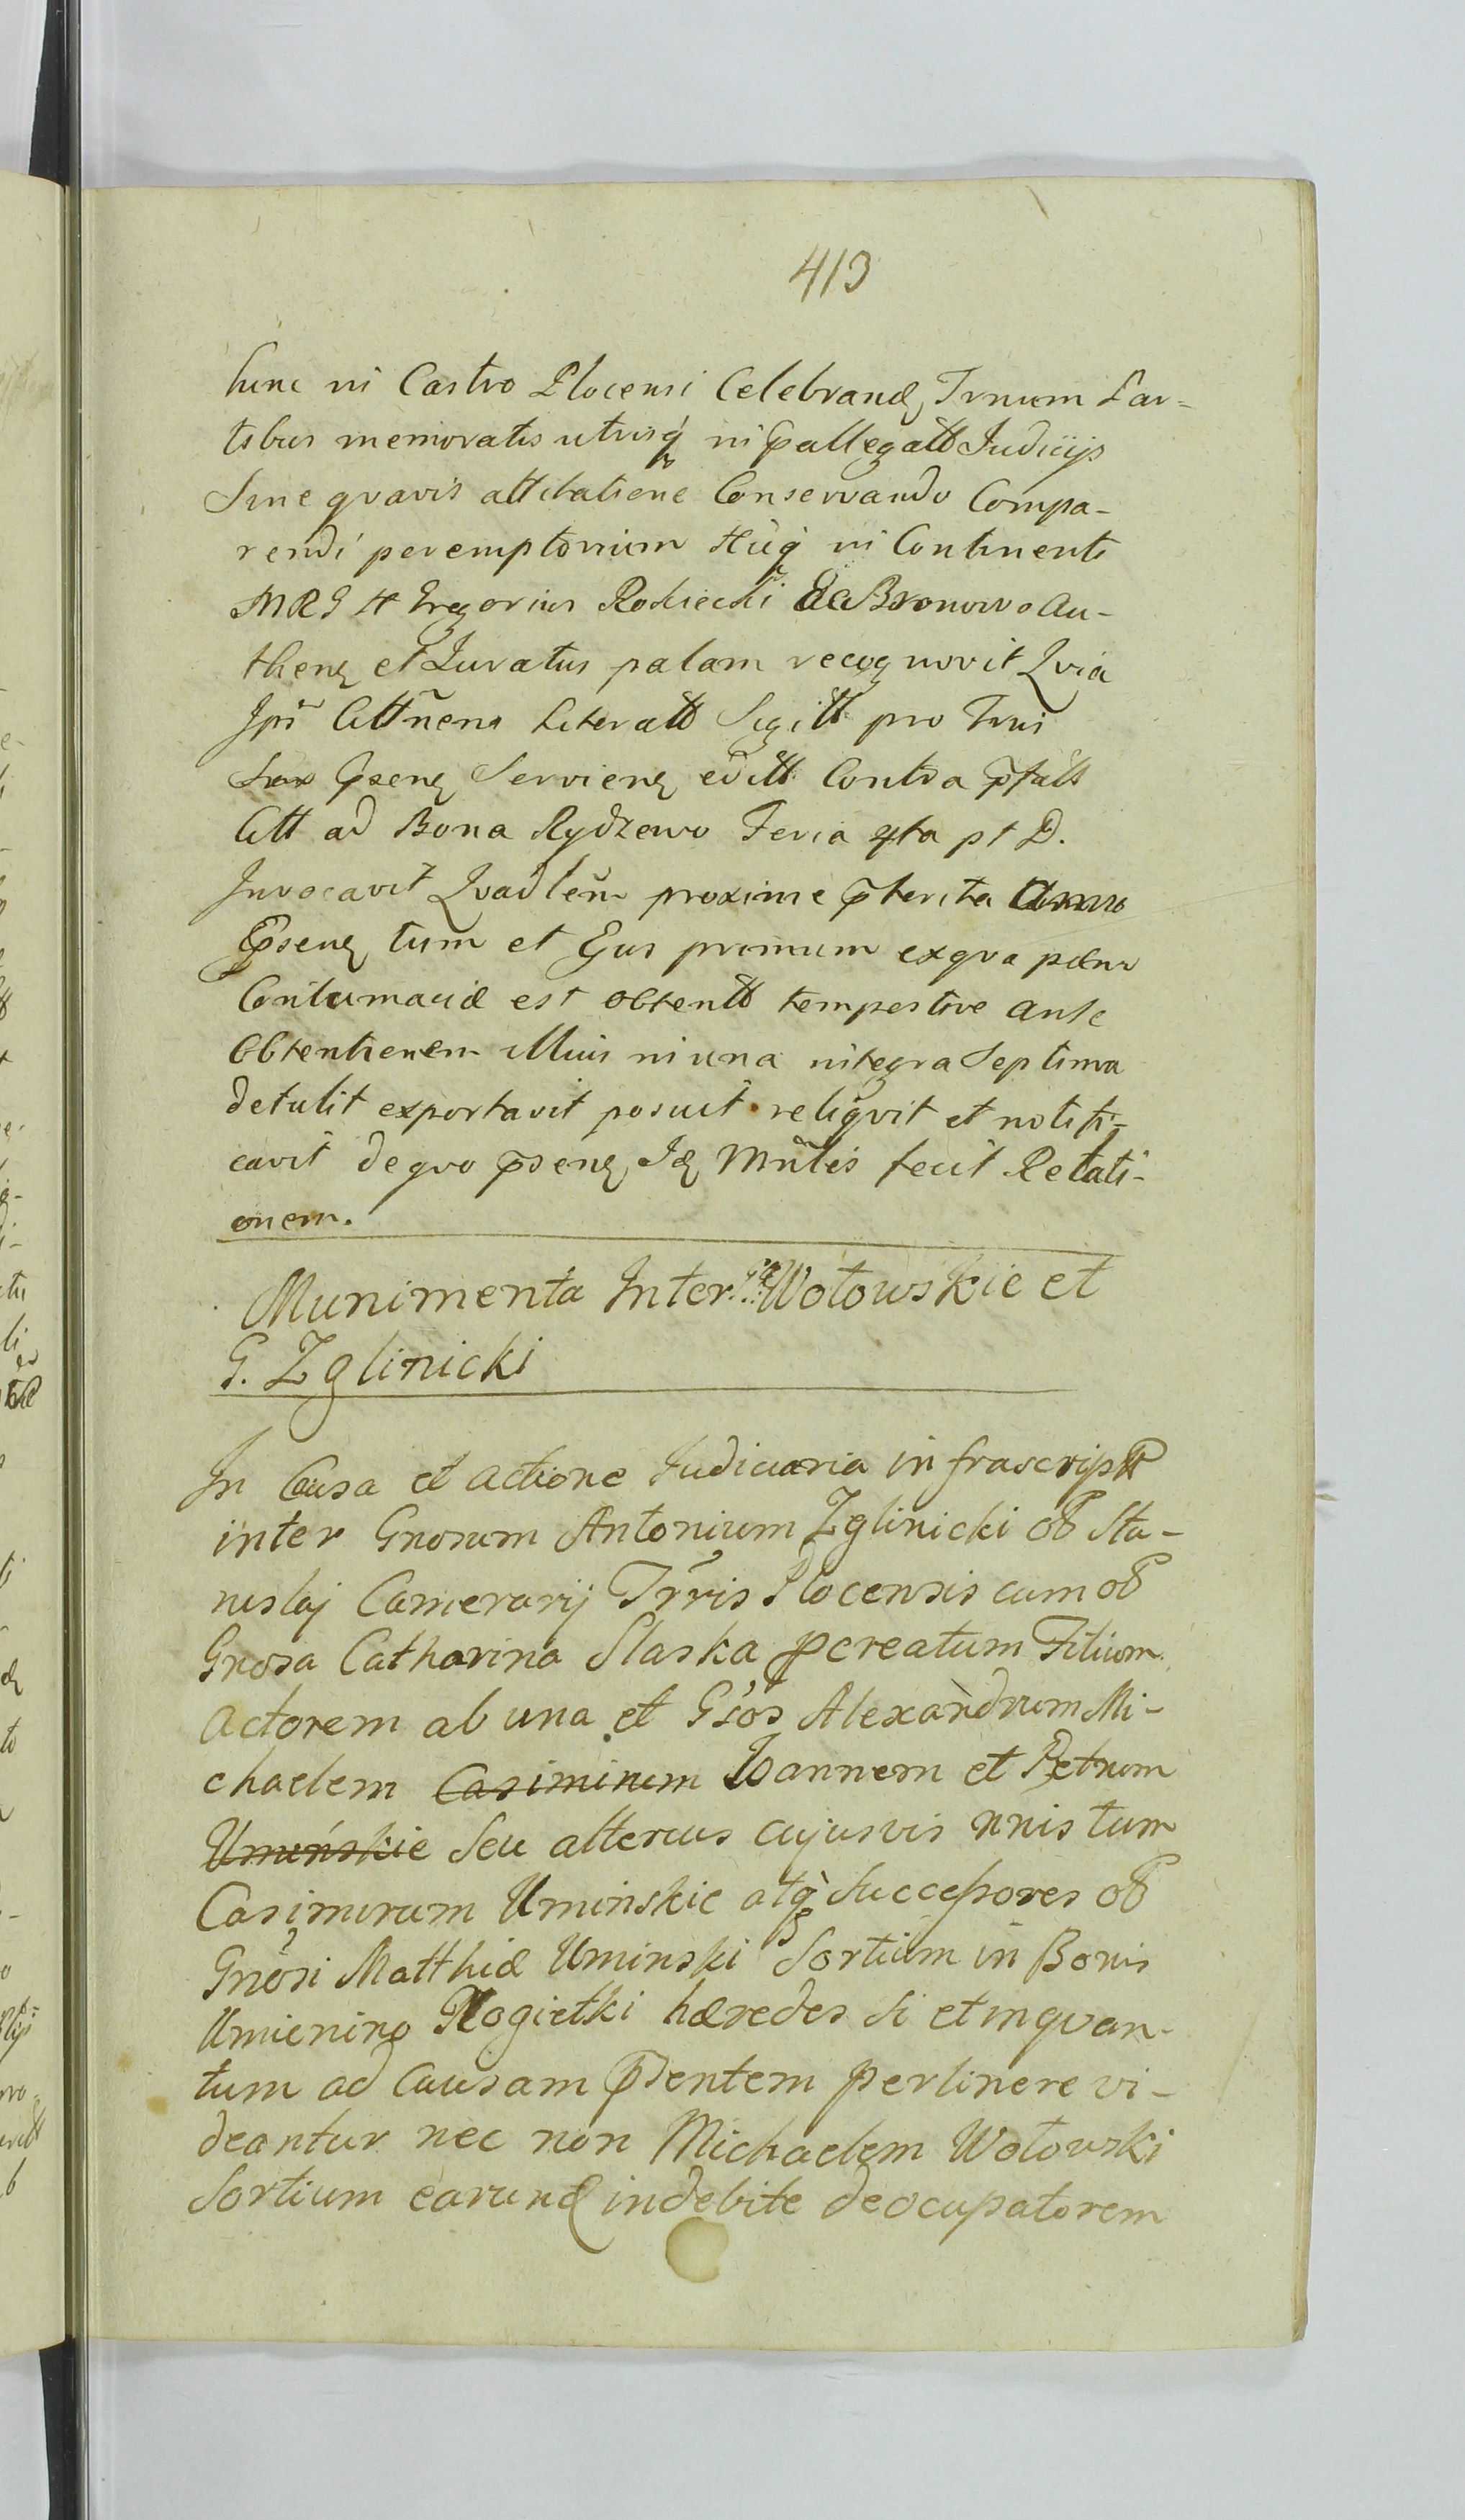 413
hinc in Castro Plocensi Celebrand, Trnum Par-
tibus memoratis utrisq in Pallegatt Judicijs
Sine qvavis attitatione Conservando Compa-
rendi peremptorium Hucq in Continenti
MRG Gregorius Rokicki de Bronowo Au-
then et Juratus palam recognovit Qvia
Ipse Citt̃nem Literatt Sigitt pro Trni
Psen Servien editt Contra p̃fatt
Citt ad Bona Rydzewo Feria 4ta pt D.
Invocavit Qvadlem proxime p̃terita Anno
P̃sen tum et Ejus primum exqva pæna
Contumaciæ est obtentt tempestive ante
Obtentionem illius in una integra Septima
detulit exportavit posuit reliqvit et notifi-
cavit de qvo p̃sen Id Mñlis fecit Relati-
onem.
Munimenta Inter Wołowskie et
G. Zglinicki
In Causa et actione Judiciaria infrascriptt
inter Gnorum Antonium Zglinicki olt Sta-
nislaj Camerarij Tr̃ris Plocensis cum olt
Gnosa Catharina Slaska pcreatum Filium
Actorem ab una et G̃sos Alexandrum Mi-
chaelem Casimirum Joannem et Petrum
Umińskie Seu alterius cujusvis nnis tum
Casimirum Uminskie atq Successores olt
Gnosi Matthiæ Uminski Sortium in Bonis
Umienino hæredes Si et inqvan-
tum ad Causam p̃sentem pertinere vi-
deantur nec non Michaelem Wołowski
Sortium earund indebite deocupatorem